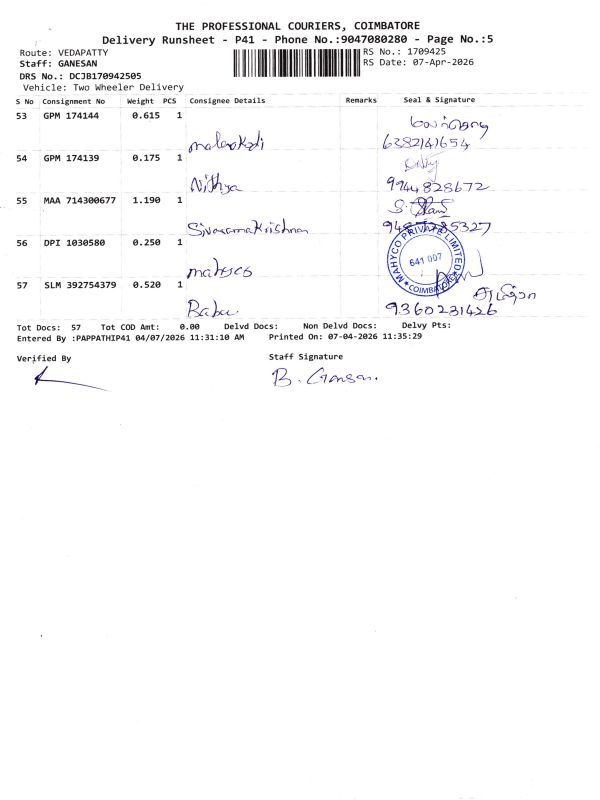 THE PROFESSIONAL COURIERS, COIMBATORE
Delivery Runsheet - P41 - Phone No.:9047080280 - Page No.:5
Route: VEDAPATTY
RS No.: 1709425
Staff: GANESAN
RS Date: 07-Apr-2026
DRS No.: DCJB170942505
Vehicle: Two Wheeler Delivery
S No Consignment No Weight PCS Consignee Details Remarks Seal & Signature
53 GPM 174144 0.615 1
6382141654
54 GPM 174139 0.175 1
Nithya 9944828672
55 MAA 714300677 1.190 1
Sivaramakrishnan
56 DPI 1030580 0.250 1
MAHYCO PRIVATE LIMITED
641 007
COIMBATORE
57 SLM 392754379 0.520 1
Babu 9360231426
Tot Docs: 57 Tot COD Amt: 0.00 Delvd Docs: Non Delvd Docs: Delvy Pts:
Entered By :PAPPATHIP41 04/07/2026 11:31:10 AM Printed On: 07-04-2026 11:35:29
Verified By Staff Signature
B. Ganesan.